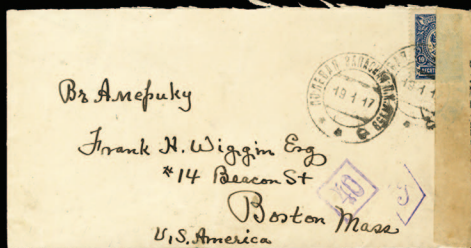 Въ Америку
Frank H. Wiggin Esq
#14 Beacon St
Boston Mass
U.S. America
19 1 17
40